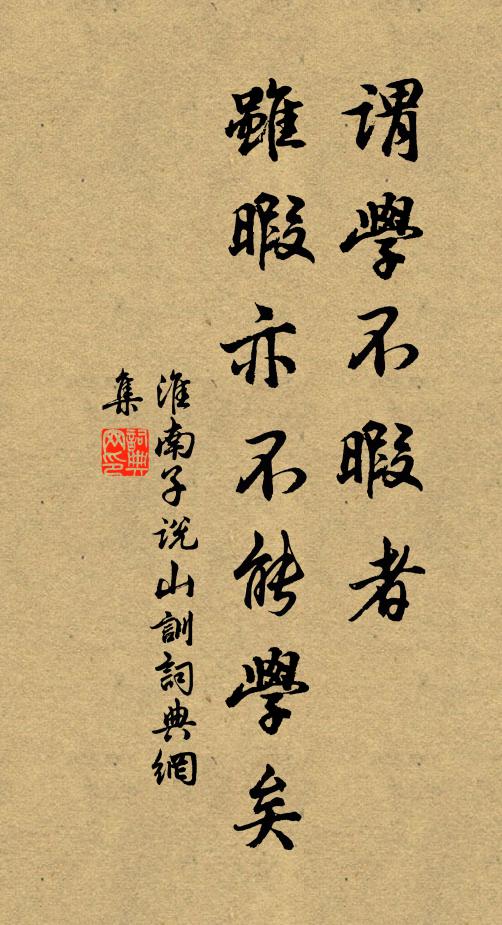 謂學不暇者
雖暇亦不能學矣
淮南子說山訓詞典網
集
詞典
网印